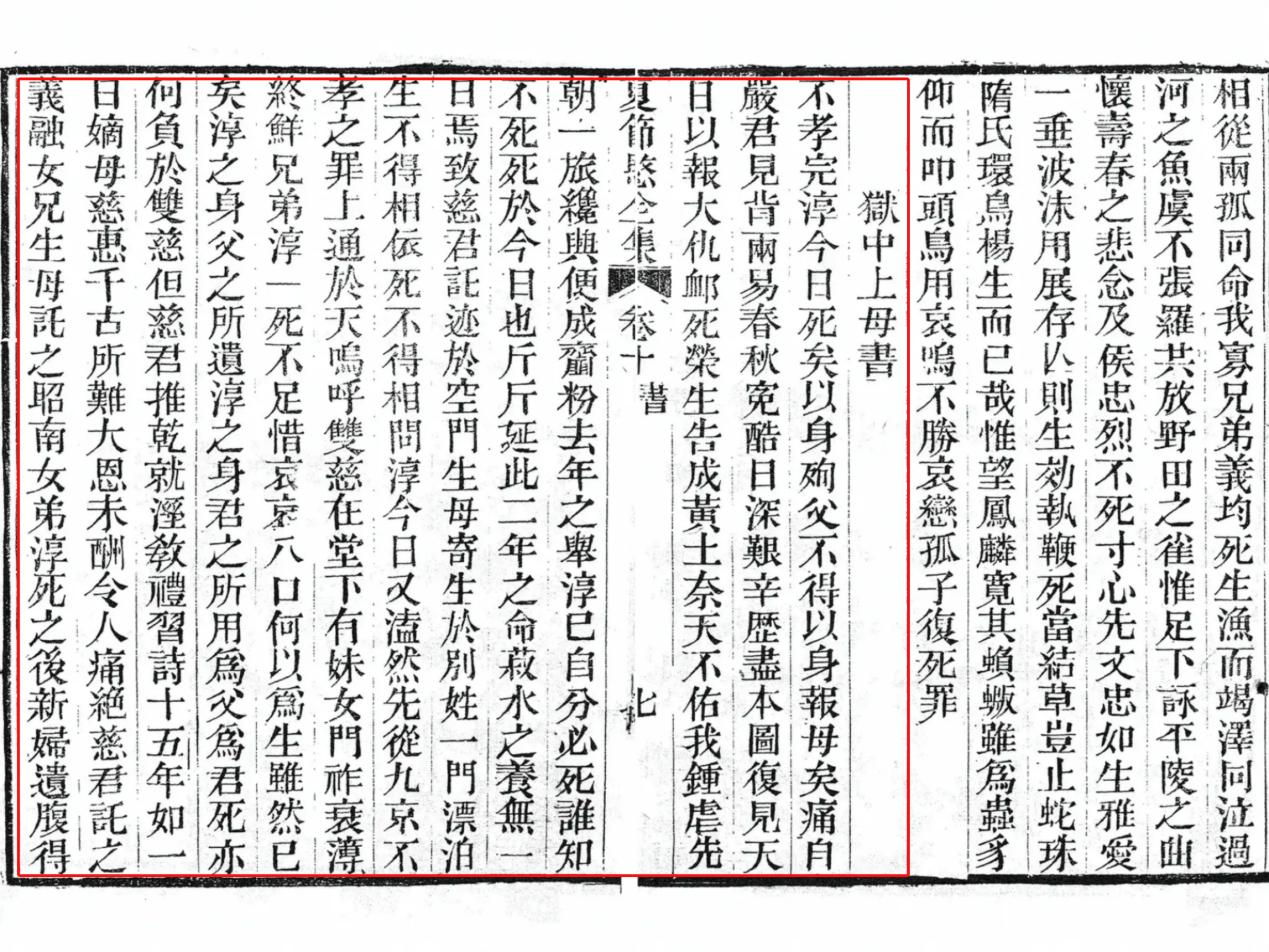 相從兩孤同命我寡兄弟義均死生漁而竭澤同泣過
河之魚虞不張羅共放野田之雀惟足下詠平陵之曲
懷壽春之悲念及侯忠烈不死寸心先文忠如生雅愛
一垂波沫用展存亾則生効執鞭死當結草豈止蛇珠
隋氏環鳥楊生而已哉惟望鳳麟寬其蝜蝂雖爲蟲豸
仰而叩頭鳥用哀鳴不勝哀戀孤子復死罪
獄中上母書
不孝完淳今日死矣以身殉父不得以身報母矣痛自
嚴君見背兩易春秋寃酷日深艱辛歴盡本圖復見天
日以報大仇卹死榮生告成黃土奈天不佑我鍾虐先
夏節愍全集 卷十 書 七
朝一旅纔興便成齏粉去年之舉淳已自分必死誰知
不死死於今日也斤斤延此二年之命菽水之養無一
日焉致慈君託迹於空門生母寄生於別姓一門漂泊
生不得相依死不得相問淳今日又溘然先從九京不
孝之罪上通於天嗚呼雙慈在堂下有妹女門祚衰薄
終鮮兄弟淳一死不足惜哀哀八口何以爲生雖然已
矣淳之身父之所遺淳之身君之所用爲父爲君死亦
何負於雙慈但慈君推乾就溼敎禮習詩十五年如一
日嫡母慈惠千古所難大恩未酬令人痛絕慈君託之
義融女兄生母託之昭南女弟淳死之後新婦遺腹得